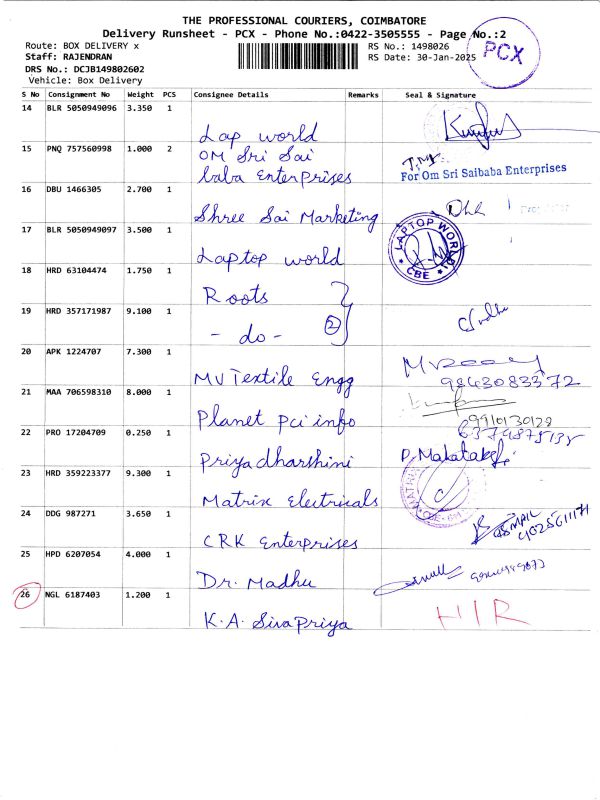 THE PROFESSIONAL COURIERS, COIMBATORE
Delivery Runsheet - PCX - Phone No.:0422-3505555 - Page No.:2
Route: BOX DELIVERY x
RS No.: 1498026
PCX
Staff: RAJENDRAN
RS Date: 30-Jan-2025
DRS No.: DCJB149802602
Vehicle: Box Delivery
S No Consignment No Weight PCS Consignee Details Remarks Seal & Signature
14 BLR 5050949096 3.350 1
Lap world
15 PNQ 757560998 1.000 2
OM Sri Sai
baba Enterprises
For Om Sri Saibaba Enterprises
16 DBU 1466305 2.700 1
Shree Sai Marketing
17 BLR 5050949097 3.500 1
Laptop world
LAPTOP WORLD
CBE
18 HRD 63104474 1.750 1
Roots
19 HRD 357171987 9.100 1
- do - 2
20 APK 1224707 7.300 1
MV Textile Engg
9843083372
21 MAA 706598310 8.000 1
Planet pci info
9910130128
22 PRO 17204709 0.250 1
6379875135
Priyadharshini
23 HRD 359223377 9.300 1
Matrix Electricals
24 DDG 987271 3.650 1
CRK Enterprises
25 HPD 6207054 4.000 1
Dr. Madhu
26 NGL 6187403 1.200 1
K.A. Sivapriya